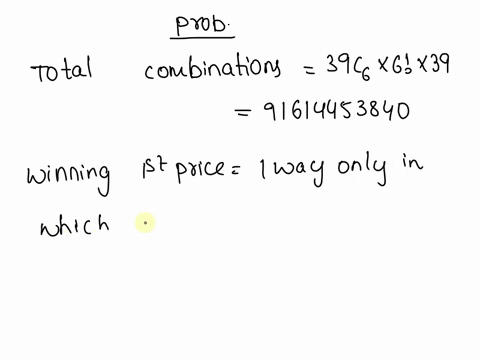 prob.
Total combinations = 39C6 × 6! × 39
= 91614453840
Winning 1st price = 1 way only in
which